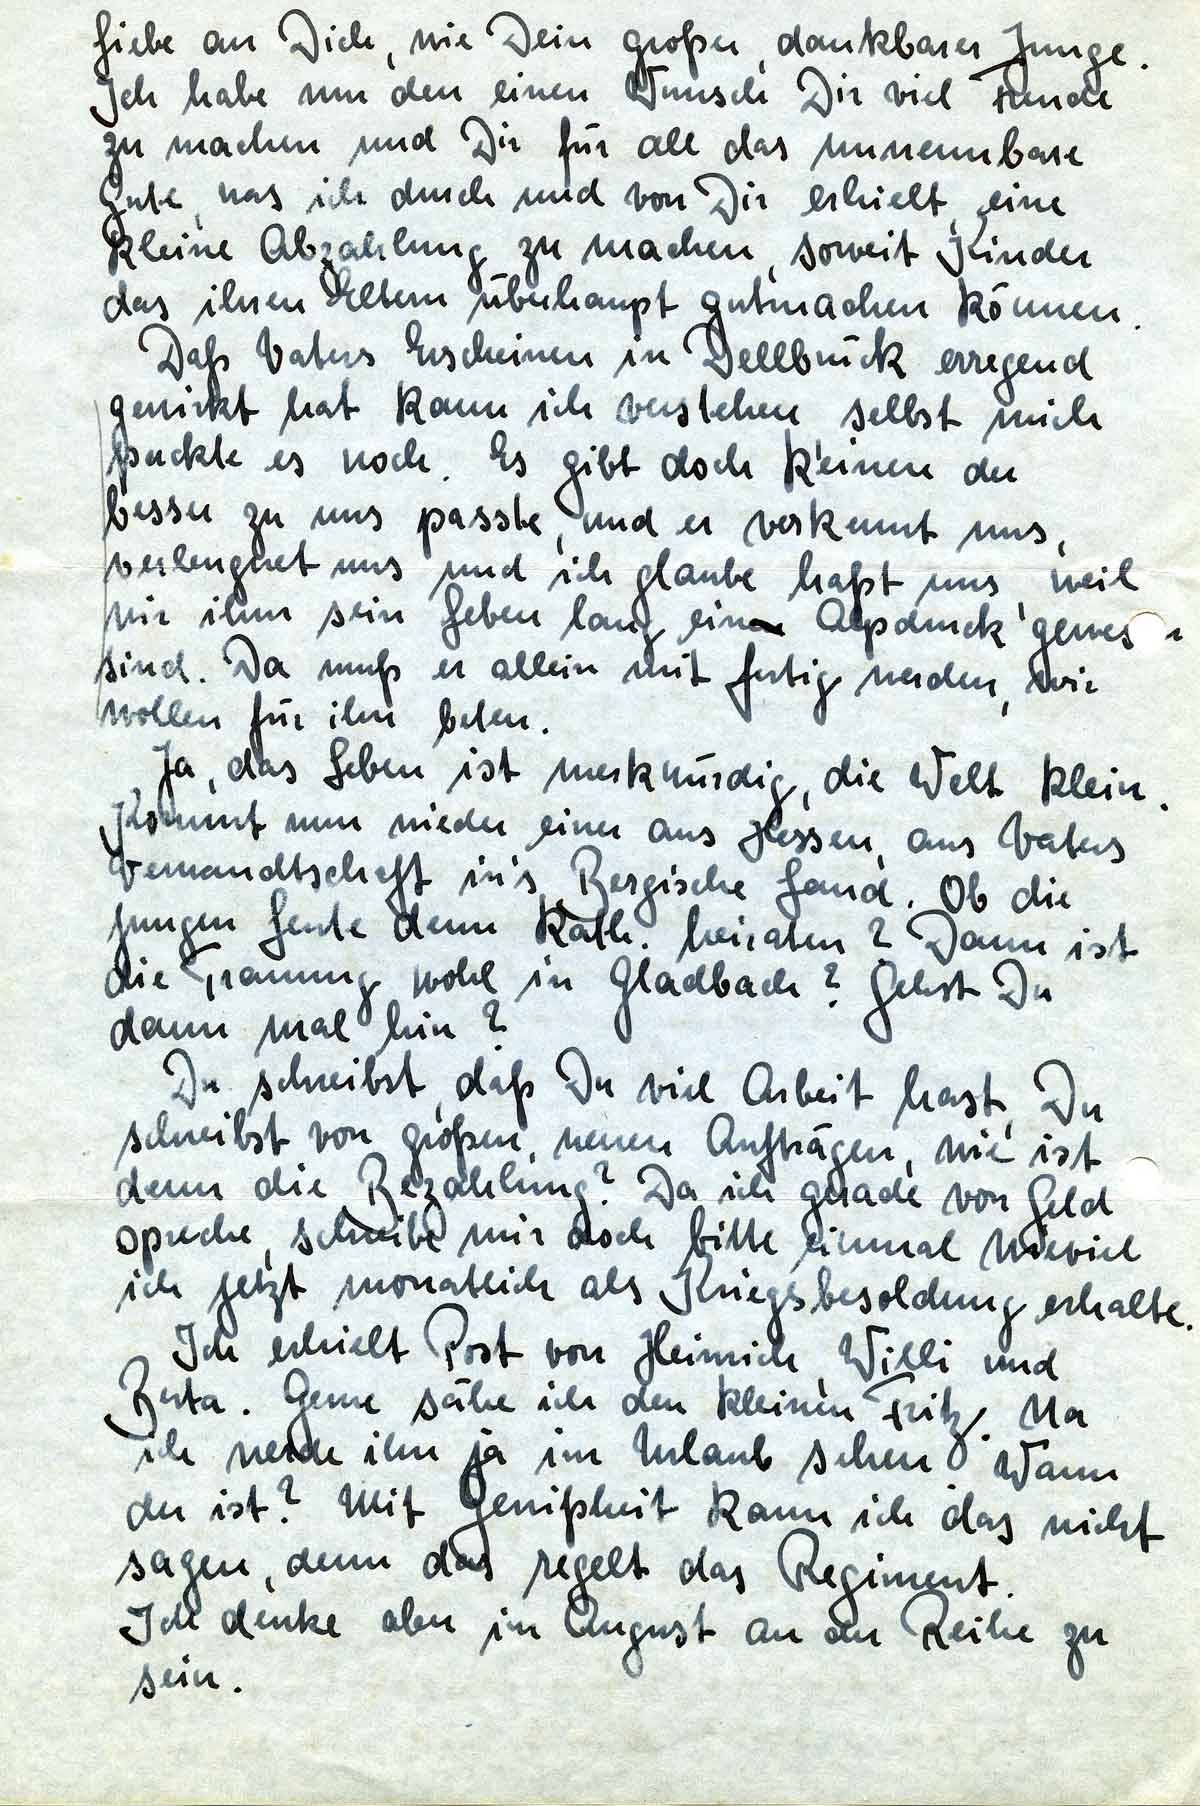 Liebe an Dich, wie Dein großer, dankbarer Junge.
Ich habe nun den einen Wunsch Dir viel Freude
zu machen und Dir für all das unnennbare
Gute, was ich durch und von Dir erhielt, eine
kleine Abzahlung zu machen, soweit Kinder
das ihren Eltern überhaupt gutmachen können.
Daß Vaters Erscheinen in Dellbrück erregend
gewirkt hat kann ich verstehen selbst mich
packte es noch. Es gibt doch keinen der
besser zu uns passte, und er verkennt uns,
verleugnet uns und ich glaube haßt uns, weil
wir ihm sein Leben lang ein Alpdruck gewesen
sind. Da muß er allein mit fertig werden, wir
wollen für ihn beten.
Ja, das Leben ist merkwürdig, die Welt klein.
Kommt nun wieder einer aus Hessen, aus Vaters
Verwandtschaft in's Bergische Land. Ob die
jungen Leute denn Kath. heiraten? Dann ist
die Trauung wohl in Gladbach? Gehst Du
dann mal hin?
Du schreibst, daß Du viel Arbeit hast, Du
schreibst von großen, neuen Aufträgen, wie ist
denn die Bezahlung? Da ich gerade von Geld
spreche, schreibe mir doch bitte einmal wieviel
ich jetzt monatlich als Kriegsbesoldung erhalte.
Ich erhielt Post von Heinrich, Willi und
Berta. Gerne sähe ich den kleinen Fritz. Na
ich werde ihn ja im Urlaub sehen. Wann
der ist? Mit Gewißheit kann ich das nicht
sagen, denn das regelt das Regiment.
Ich denke aber im August an der Reihe zu
sein.